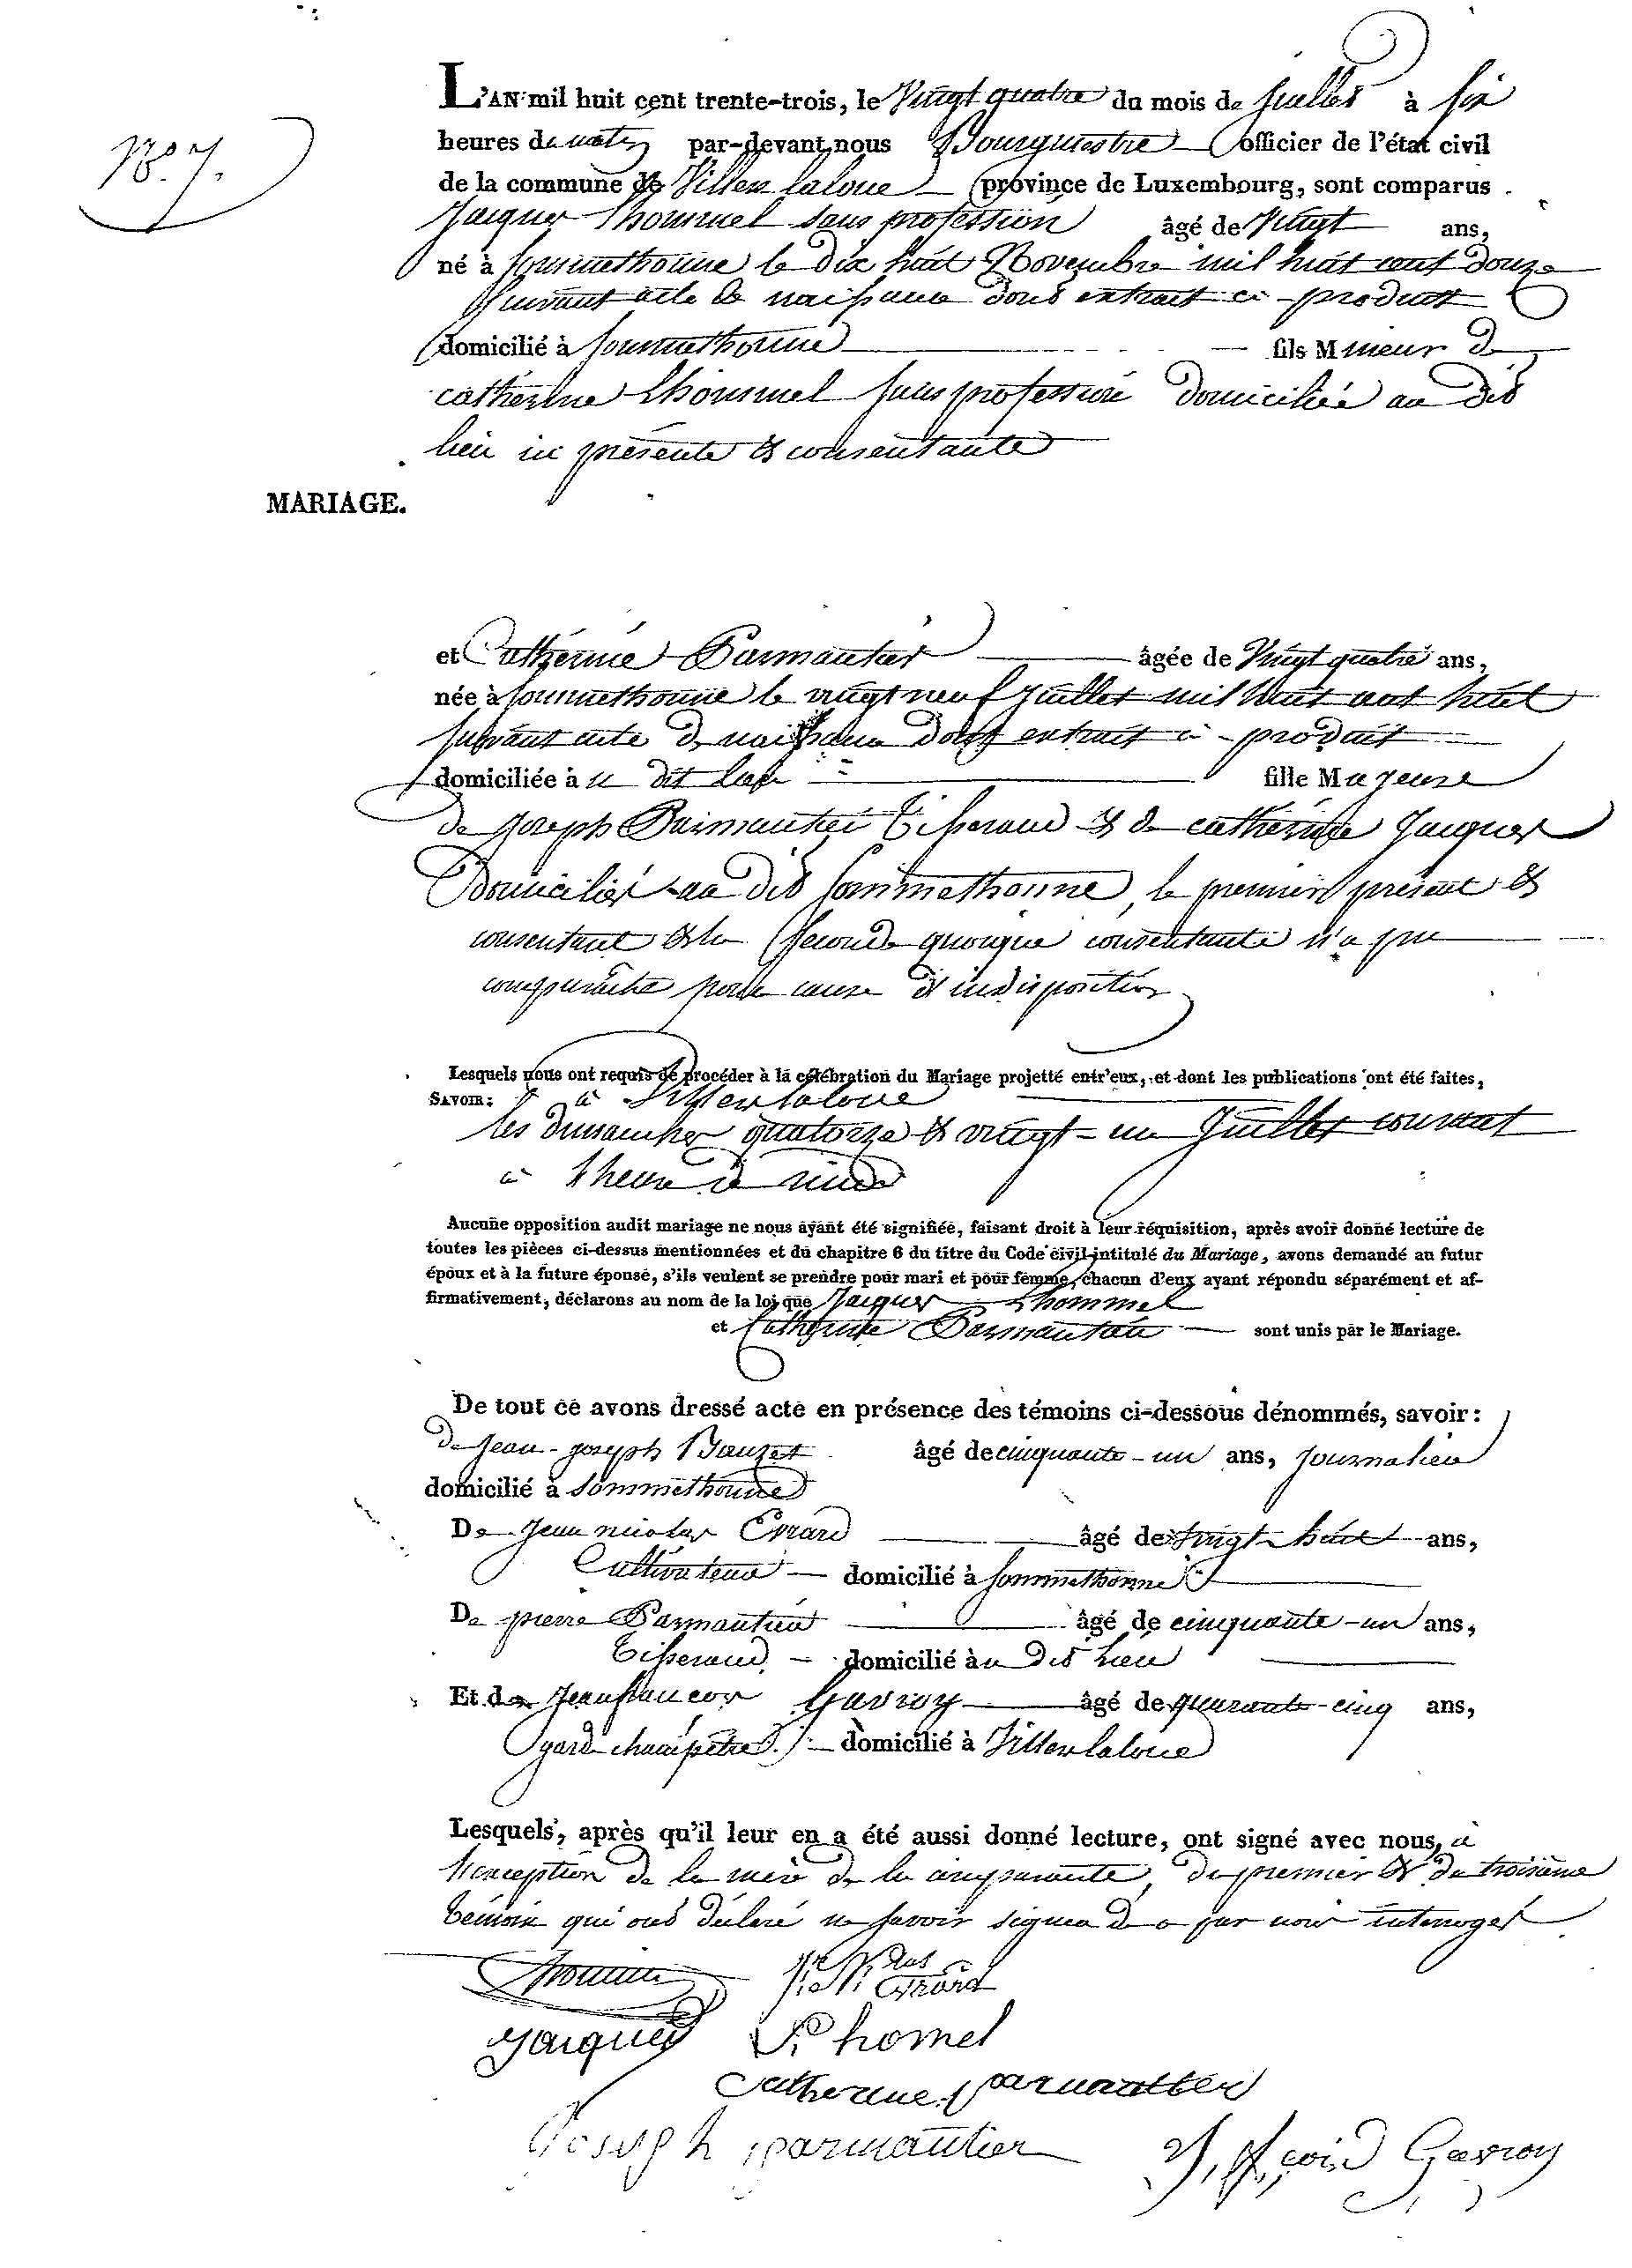 L'AN mil huit cent trente-trois, le Vingt quatre du mois de juillet à six
N.° 7.
heures du matin par-devant nous Bourgmestre officier de l'état civil
de la commune de Villers laloue province de Luxembourg, sont comparus
Jacques Lhommel sans profession âgé de Vingt ans,
né à Sommethonne le dix huit Novembre mil huit cent douze
suivant acte de naissance dont extrait ci-produit
domicilié à Sommethonne fils Mineur de
catherine Lhommel sans profession domiciliée au dit
lieu ici présente & consentante
MARIAGE.
et Cathérine Parmantier âgée de Vingt quatre ans,
née à Sommethonne le vingt neuf Juillet mil huit cent huit
suivant acte de naissance dont extrait ci-produit
domiciliée à u dit lieu fille Majeure
de Joseph Parmantier Tisserand & de cathérine Jacques
Domiciliés au dit Sommethonne, le premier présent &
consentant & la seconde quoique consentante n'a pu
comparaitre pour cause d'indisposition
Lesquels nous ont requis de procéder à la célébration du Mariage projetté entr'eux, et dont les publications ont été faites,
SAVOIR: à Villers laloue
les dimanches quatorze & vingt-un Juillet courant
à l'heure de midi
Aucune opposition audit mariage ne nous ayant été signifiée, faisant droit à leur réquisition, après avoir donné lecture de
toutes les pièces ci-dessus mentionnées et du chapitre 6 du titre du Code civil intitulé du Mariage, avons demandé au futur
époux et à la future épouse, s'ils veulent se prendre pour mari et pour femme, chacun d'eux ayant répondu séparément et af-
firmativement, déclarons au nom de la loi que Jacques Lhommel
et Catherine Parmantier sont unis par le Mariage.
De tout ce avons dressé acte en présence des témoins ci-dessous dénommés, savoir:
de Jean-joseph Bauzet âgé de cinquante-un ans, journalier
domicilié à Sommethonne
De Jean nicolas Evrard âgé de vingt-huit ans,
Cultivateur domicilié à Sommethonne
De pierre Parmantier âgé de cinquante-un ans,
Tisserand domicilié àu dit lieu
Et de Jean françois Gavroy âgé de quarante-cinq ans,
garde champêtre domicilié à Villers laloue
Lesquels, après qu'il leur en a été aussi donné lecture, ont signé avec nous, à
l'exception de la mère de la comparante, du premier & du troisième
témoin qui ont déclaré ne savoir signer de ce par nous interrogés
Evrard
Jacques Lhomel
Catherine parmantier
Joseph parmantier
J. fçois Gavroy